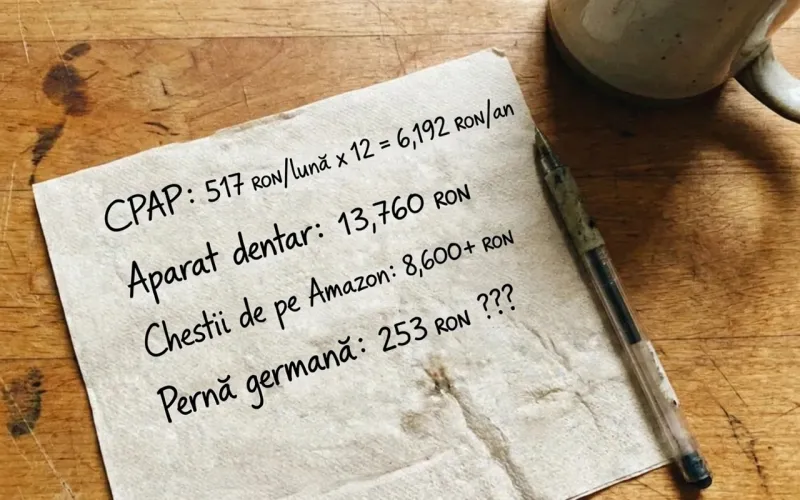 CPAP: 517 RON/lună x 12 = 6,192 RON/an
Aparat dentar: 13,760 RON
Chestii de pe Amazon: 8,600+ RON
Pernă germană: 253 RON ???